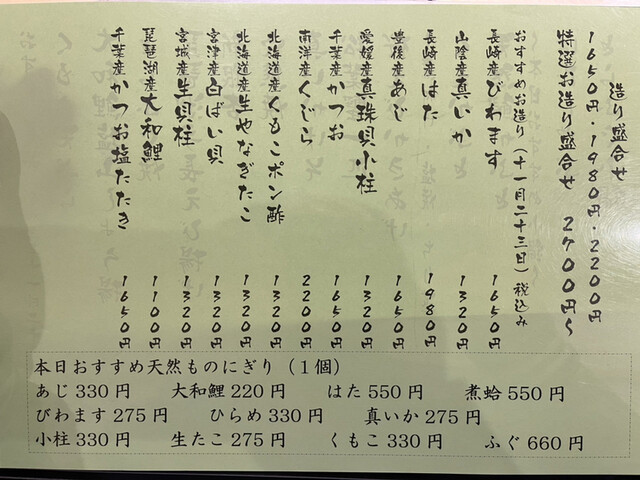 造り盛合せ
1650円・1980円・2200円
特選お造り盛合せ 2700円~
おすすめお造り(十一月二十三日)税込み
長崎産びわます 1650円
山陰産真いか 1320円
長崎産はた 1980円
豊後産あじ 1650円
愛媛産真珠貝小柱 1320円
千葉産かつお 1650円
南洋産くじら 2200円
北海道産くもこポン酢 1320円
北海道産生やなぎたこ 1320円
宮津産白ばい貝 1320円
宮城産生貝柱 1320円
琵琶湖産大和鯉 1100円
千葉産かつお塩たたき 1650円
本日おすすめ天然ものにぎり(1個)
あじ330円 大和鯉220円 はた550円 煮蛤550円
びわます275円 ひらめ330円 真いか275円
小柱330円 生たこ275円 くもこ330円 ふぐ660円